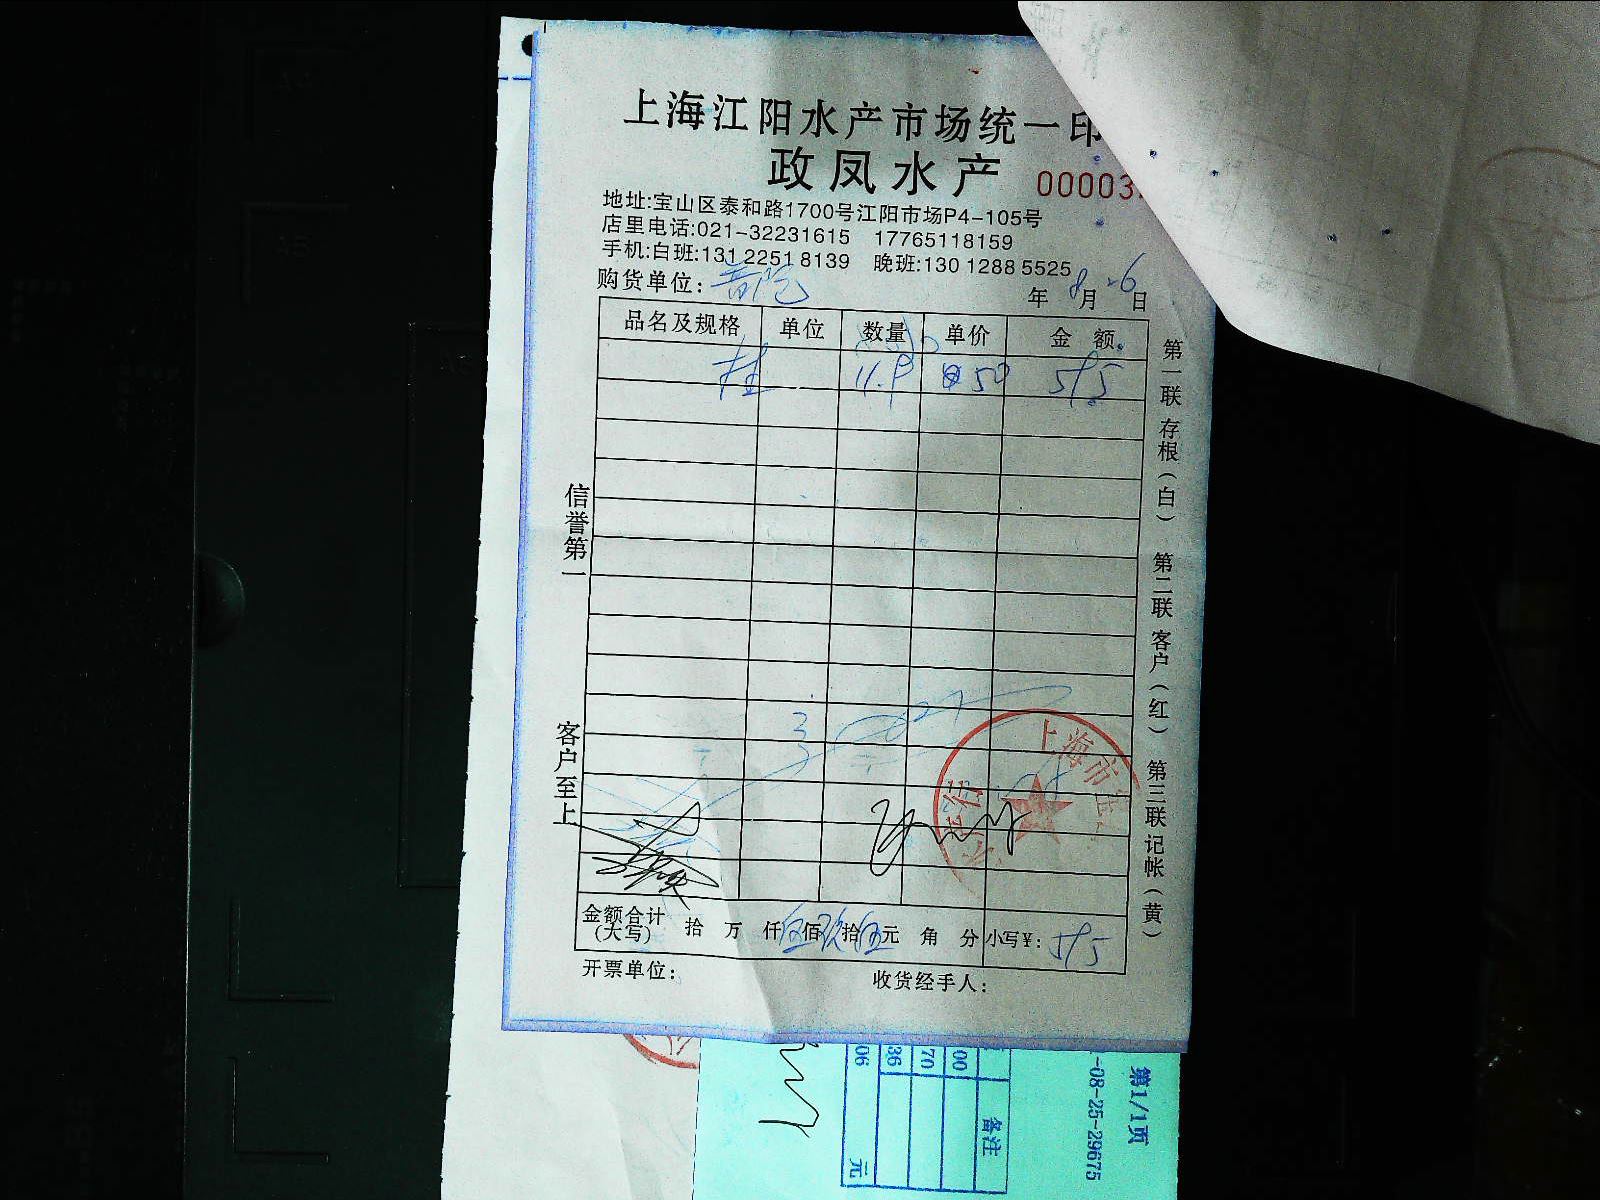 上海江阳水产市场统一印
政凤水产
00003
地址:宝山区泰和路1700号江阳市场P4-105号
店里电话:021-32231615 17765118159
手机:白班:131 2251 8139 晚班:130 1288 5525
购货单位: 普陀
年 8月 26日
品名及规格 单位 数量 单价 金额
桂 11.9 50 595
信誉第一
客户至上
第一联存根(白) 第二联客户(红) 第三联记帐(黄)
上海市
金额合计(大写) 拾 万 仟伍佰玖拾伍元 角 分 小写¥: 595
开票单位: 收货经手人:
第1/1页
-08-25-29675
备注
00
70
36
06
元